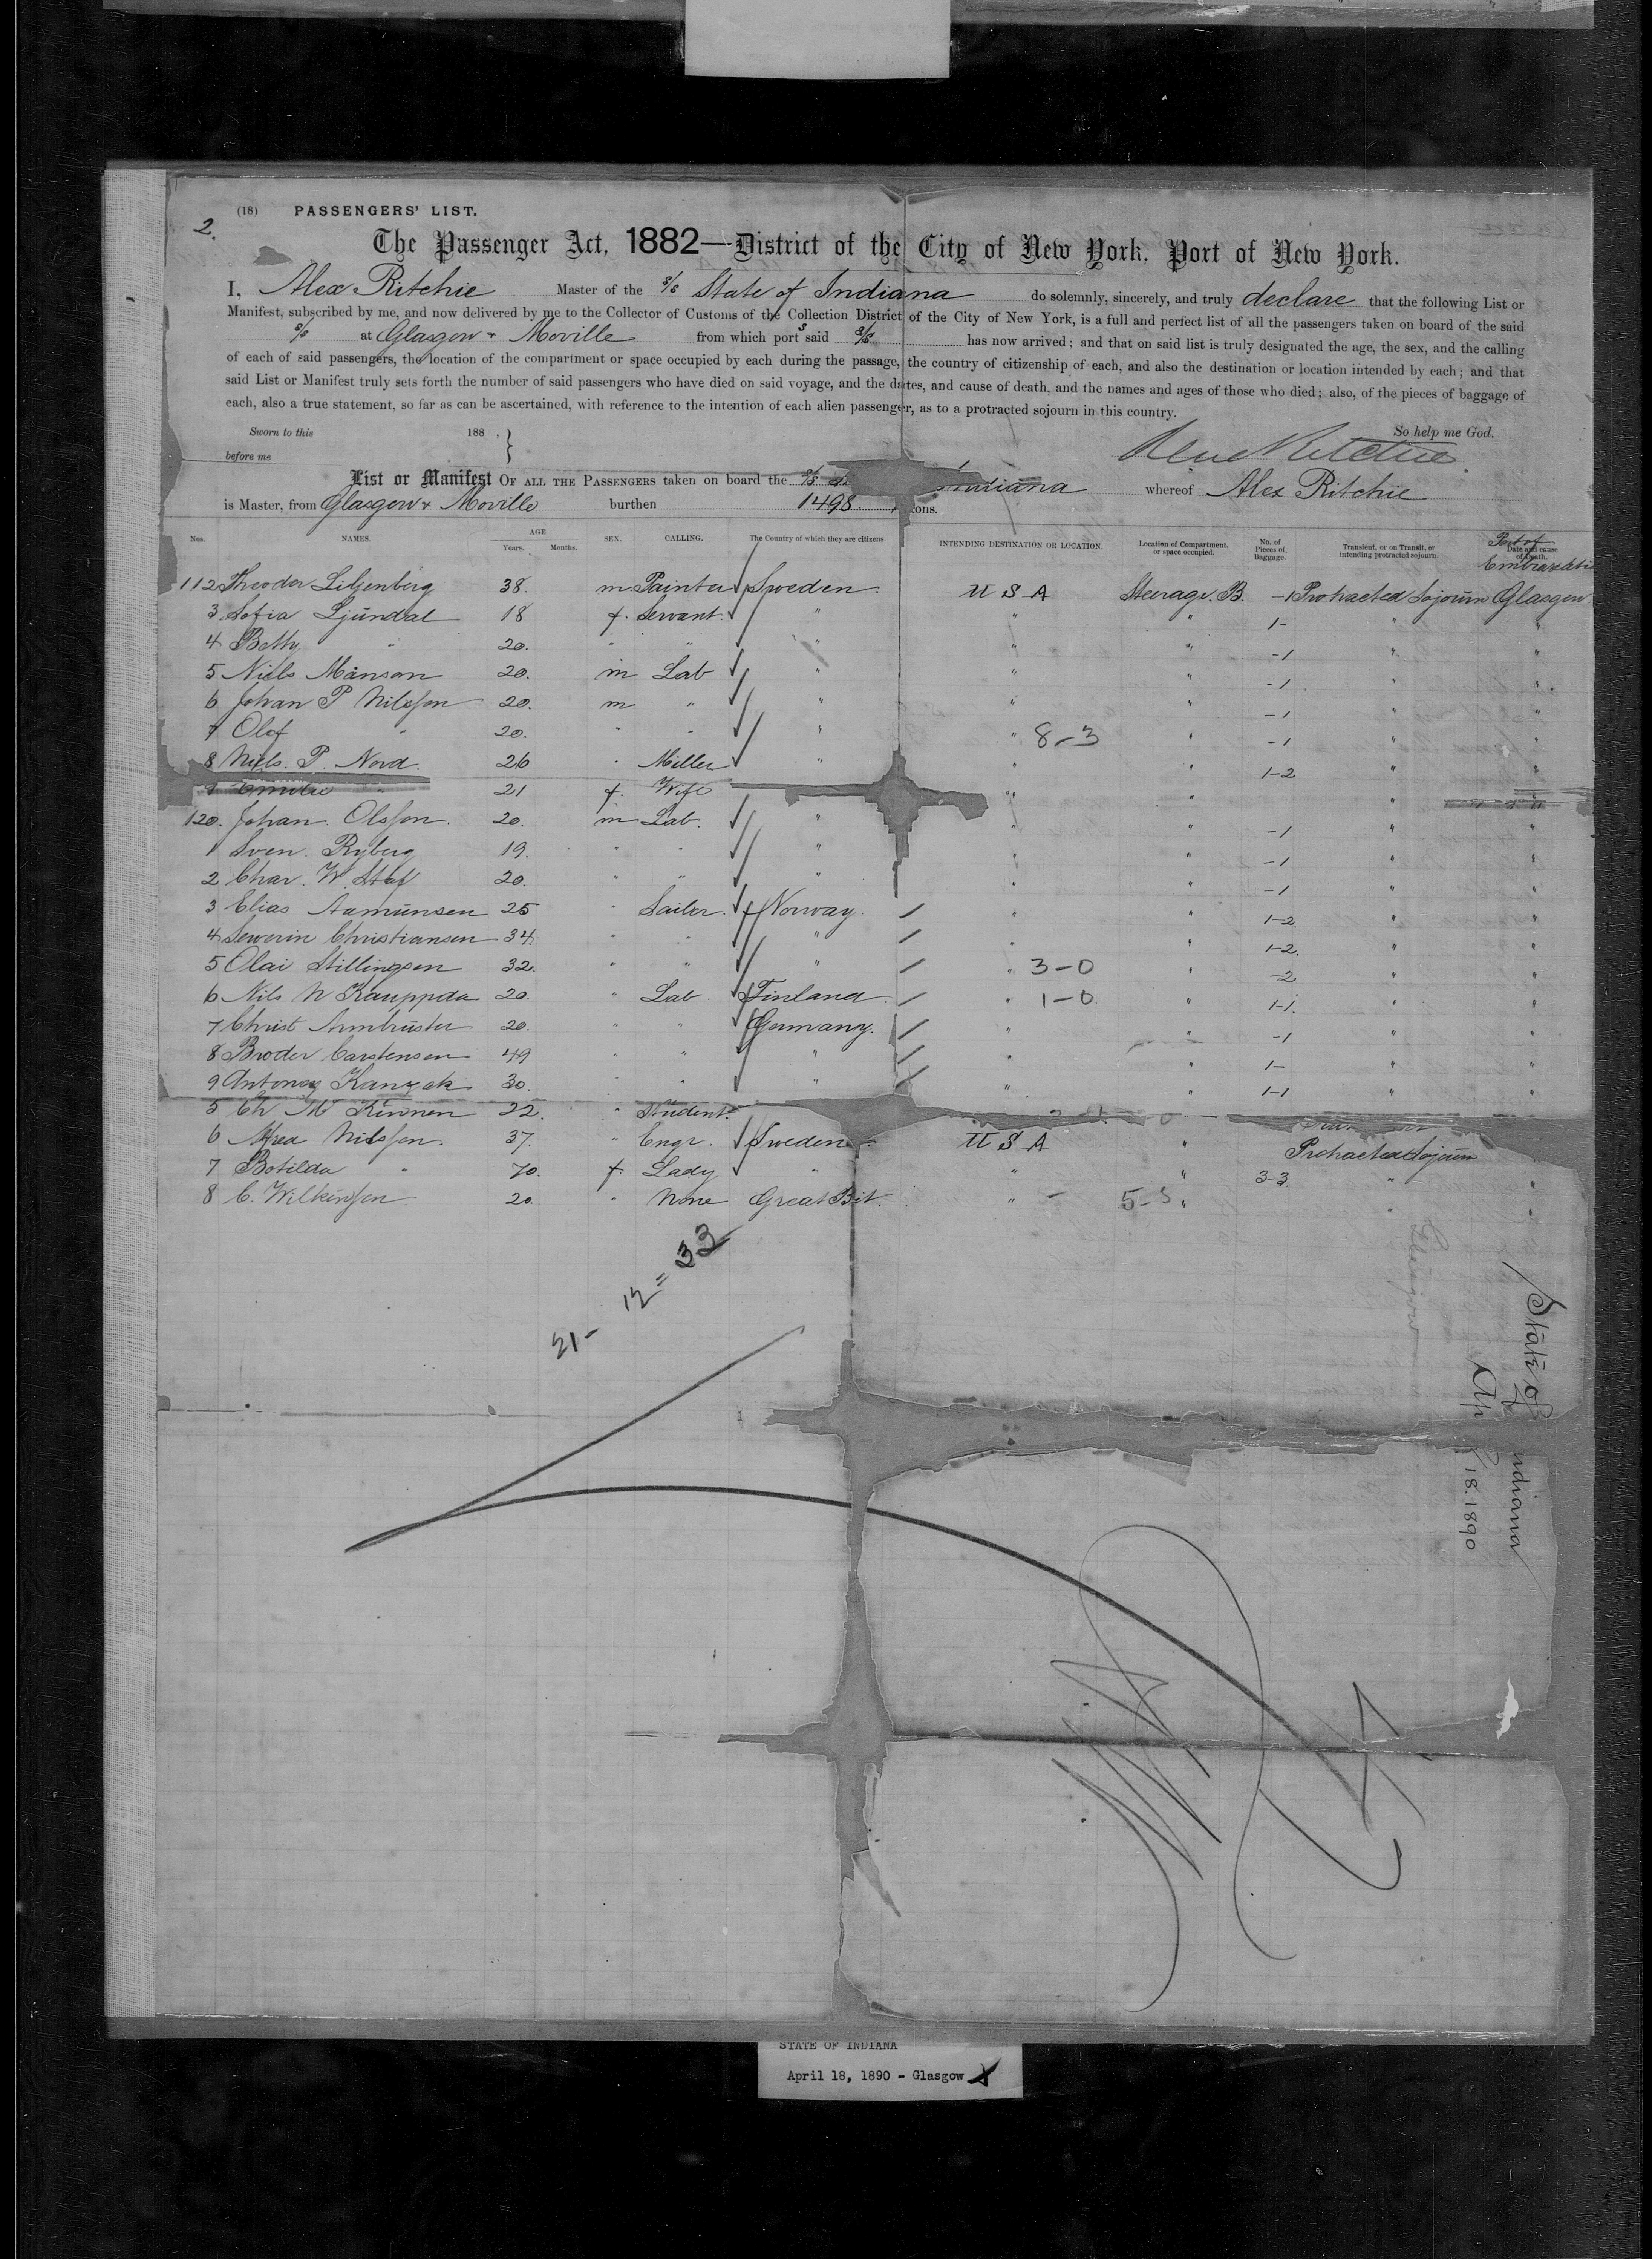 2.
(18) PASSENGERS' LIST.
The Passenger Act, 1882—District of the City of New York, Port of New York.
I, Alex Ritchie Master of the S/S State of Indiana do solemnly, sincerely, and truly declare that the following List or
Manifest, subscribed by me, and now delivered by me to the Collector of Customs of the Collection District of the City of New York, is a full and perfect list of all the passengers taken on board of the said
S/S at Glasgow & Moville from which ports said S/S has now arrived; and that on said list is truly designated the age, the sex, and the calling
of each of said passengers, the location of the compartment or space occupied by each during the passage, the country of citizenship of each, and also the destination or location intended by each; and that
said List or Manifest truly sets forth the number of said passengers who have died on said voyage, and the dates, and cause of death, and the names and ages of those who died; also, of the pieces of baggage of
each, also a true statement, so far as can be ascertained, with reference to the intention of each alien passenger, as to a protracted sojourn in this country.
Sworn to this 188 , So help me God.
before me Alex Ritchie
List or Manifest OF ALL THE PASSENGERS taken on board the S/S Indiana whereof Alex Ritchie
is Master, from Glasgow & Moville burthen 1498 tons.
Nos. NAMES. AGE Years. Months. SEX. CALLING. The Country of which they are citizens INTENDING DESTINATION OR LOCATION. Location of Compartment, or space occupied. No. of Pieces of Baggage. Transient, or on Transit, or intending protracted sojourn. Date and cause of Death. Port of Embarkation
112 Theodor Liljenberg 38. m Painter Sweden. U S A Steerage. B. -1 Protracted Sojourn Glasgow
3 Sofia Ljundal 18 f. Servant. " " " 1- " "
4 Betty " 20. " " " " " -1 " "
5 Niels Månson 20. m Lab " " " -1 " "
6 Johan P Nilsson 20. m " " " " -1 " "
7 Olof " 20. " " " " 8-3 " -1 " "
8 Niels. P. Nord. 26 " Miller " " " 1-2 " "
9 Emilie " 21 f. Wife " " "
120. Johan. Olsson. 20. m Lab. " " " -1 " "
1 Sven. Ryberg 19. " " " " " -1 " "
2 Char. W. Staf 20. " " " " " -1 " "
3 Elias Aamunsen 25 " Sailor. Norway. " " 1-2. " "
4 Severin Christiansen 34 " " " " " 1-2. " "
5 Olai Stillingsen 32. " " " " 3-0 " -2 " "
6 Nils N Kauppda 20. " Lab. Finland. " 1-0 " 1-1. " "
7 Christ Armbruster 20. " " Germany. " " -1 " "
8 Broder Carstensen 49 " " " " " 1- " "
9 Antonay Kanzak 30. " " " " " 1-1 " "
5 Ch Mc Kinnen 22. " Student.
6 Alfred Nilsson. 37. " Engr. Sweden. U S A " Protracted Sojourn
7 Botilda " 70. f. Lady " " " 3-3. " "
8 C. Wilkinson 20. " None Great Bit. " 5-3 " " "
21- 12 = 33
Glasgow
State of Indiana
Ap 18. 1890
STATE OF INDIANA
April 18, 1890 - Glasgow